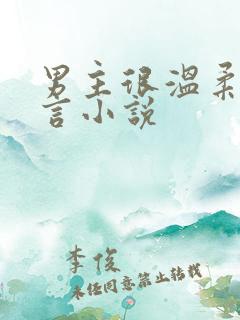 男主很温柔
言小说
李俊
未经同意禁止转载